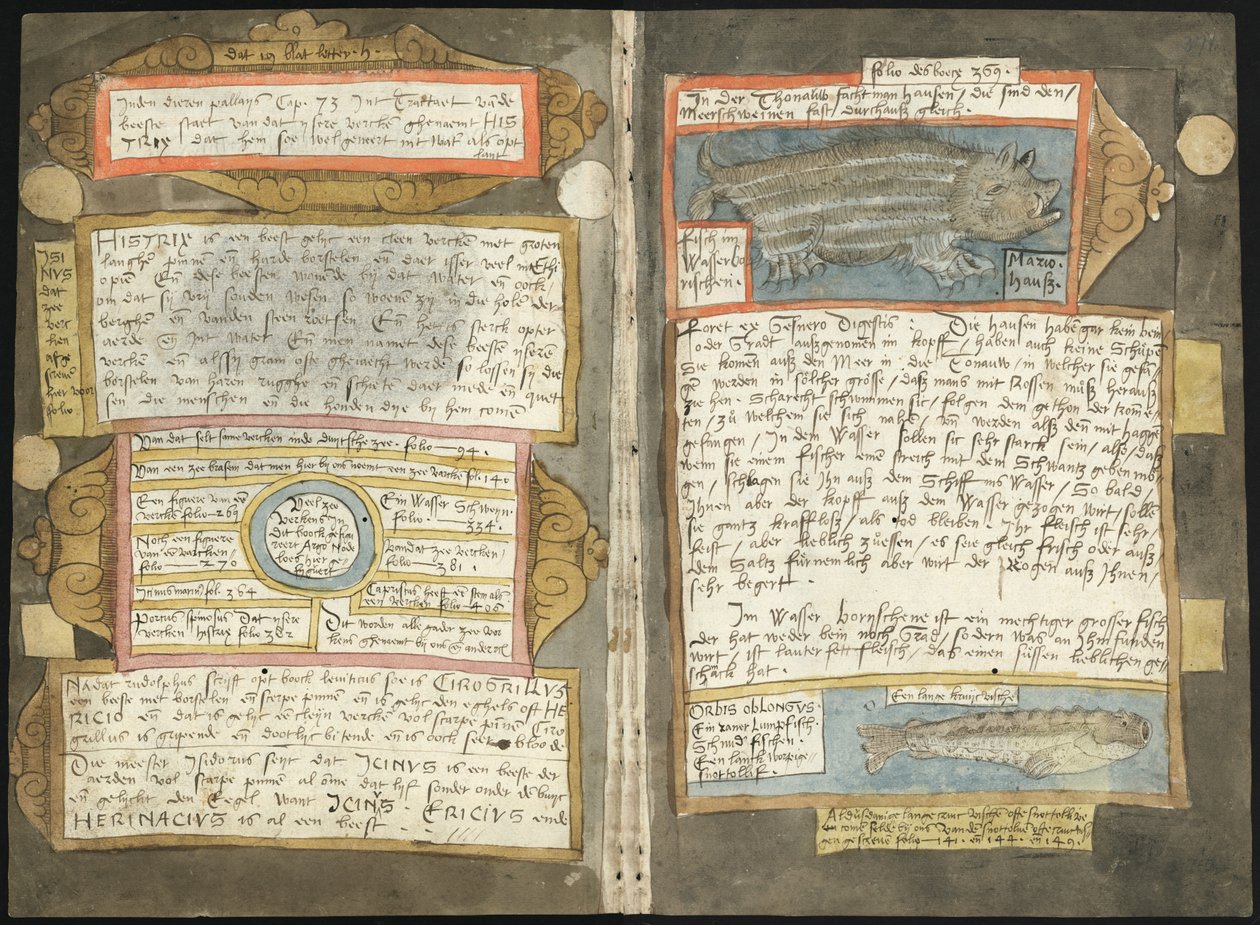 dat 19 blat letter · h ·
Inden dieren pallays Cap. 73 Int Tractaet vande
beeste staet van dat ysere vercken ghenaemt HIS
TRIX dat hem soe wel geneert int wat als opt
lant
HISTRIX is een beest gelyc een cleen vercken met groten
langhe pinnen en harde borstelen en daer isser veel in Ethi
opien En dese beesten wonende bij dat water en oock
om dat sij vrij souden wesen so wonen zij in die holen der
berghen en vanden steen roetsen En het is sterck opter
aerde en int water En men namet dese beeste yseren
vercken en alssij gram ofte gheiaecht werde so lossen sij die
borstelen van haren rugghe en schieten daer mede en quet
sen die menschen en die honden dye bij hem comen
ISI
NVS
dat
zee
verc
ken
afge
screve
hier voor
folio
Van dat seltsame vercken inde duytsche zee · folio 94 ·
Van een zee brasem dat men hier bij ons noemt een zee varcken fol · 140
Een figuere van een
vercken folio 269
Noch een figuere
van een varcken
folio 270
Icinus marinus fol. 364
Porcus spinosus Dat ysere
vercken Histrix folio 382
Veel zee
verkens In
Dit boock gefigu
reert
hier ge
figuert
Ein Wasser Schweyn ·
folio 334 ·
Van dat zee vercken ·
folio 381 ·
Capriscus heeft
een vercken folio 406
Dit worden alle gader zee ver
kens ghenaemt bij ons en ander
Nadat rudolphus scrijft opt boeck leviticus soe is CIROGRILLVS
een beeste met borstelen en scerpe pinnen en is gelyc den eghels oft HE
RICIO en dat is gelyc een cleijn vercken vol scarpe pinnen Ciro
grillus is gripende en dootlijc betende en is oock seer bloode
Die meester Isidorus seyt dat ICINVS is een beeste der
aerden vol scarpe pinnen al omme dat lijf sonder onder de buijc
en gelijcht den Eegel want ICINVS · ERICIVS ende
HERINACIVS is al een beest ·
folio des boecx 369 ·
In der Thonauw facht man hausen / die sind den /
Meerschweinen fast durchauß gleich ·
Fisch im
Wasser bo
rischen ·
Mario
hauß ·
Foret ex Gesnero Digestis · Die hausen haben gar kein bein /
oder Gradt außgenomen im kopff / haben auch keine Schüpe
Sie komen auß den Meer in die Tonauw / in welcher sie gefa
gen werden in sölcher grösse / daß mans mit Rossen müß herauß
ziehen · Scharecht schwimmen sie / folgen dem gethon der trome /
ten / zů welchem sie sich nahen / vn werden alß den mit haggen
gefangen / In dem Wasser sollen sie sehr starck sein / also / daß
wenn sie einem Fischer eine streich mit dem Schwantz geben mö
gen / schlagen sie Ihn auß dem Schiff ins Wasser / So bald /
Ihnen aber der kopff auß dem Wasser gezogen wirt / sollen
sie gantz krafftloß / als tod bleiben · Ihr fleisch ist sehr /
feist / aber lieblich zůessen / es seie gleich frisch oder auß
dem Saltz fürnemlich aber wirt der Rogen auß Ihnen /
sehr begert ·
Im Wasser Bornschene ist ein mechtiger grosser fisch
der hat weder bein noch Grad / sondern was an Ihm funden
wirt / ist lauter fett fleisch / das einen süssen lieblichen ge /
schmack hat ·
Een lange kruijc vische
ORBIS OBLONGVS ·
Ein raner Lumpfisch ·
Schnud fischen ·
Een lanck worpige
snottollif ·
Aldusdanige lange cruic vischen ofte snottolven
comen selde bij ons van de snottolve ofte
gen gescreven folio 141 · en 144 · en 149 ·